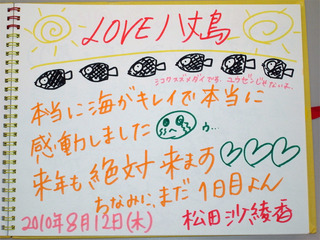 LOVE八丈島
ミコクスズメダイです。ユウゼンじゃないよ。
本当に海がキレイで本当に
感動しました
来年も絶対来ます
ちなみに、まだ1日目よん
2010年8月12日(木)
松田沙綾香